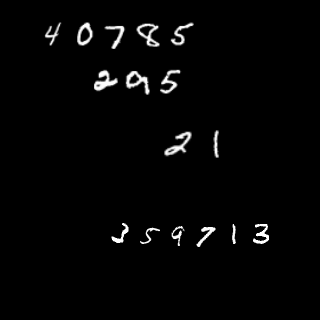 40785
295
21
359713